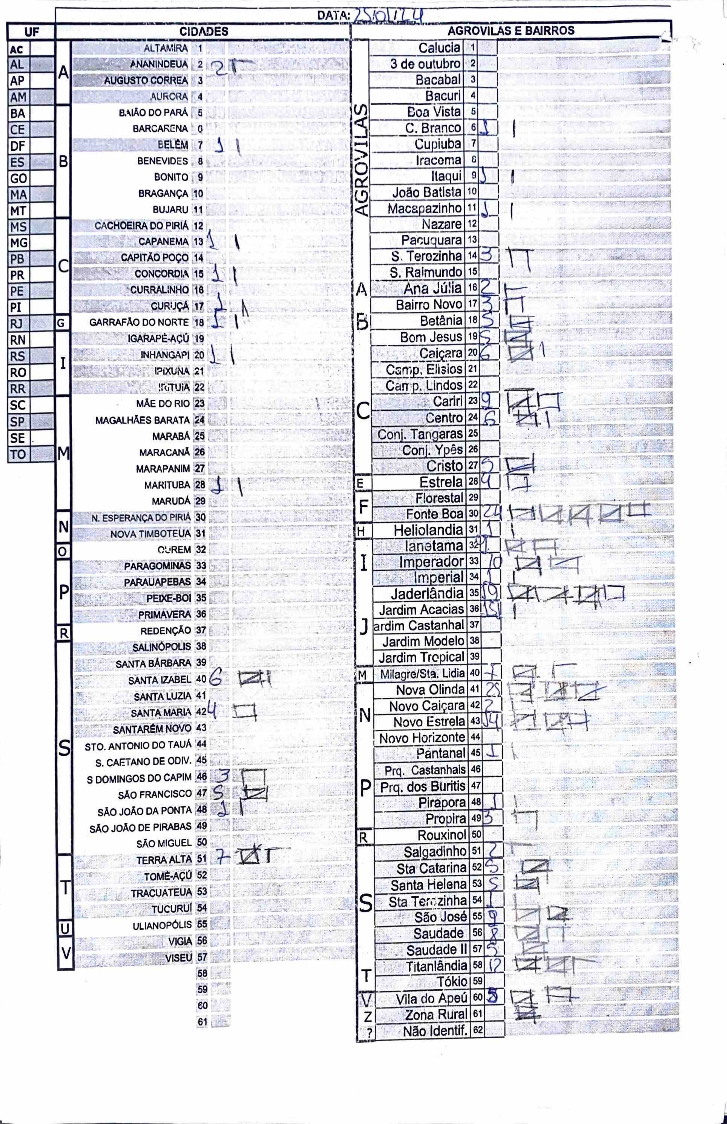 DATA: 25/01/24
UF CIDADES AGROVILAS E BAIRROS
AC
AL
AP
AM
BA
CE
DF
ES
GO
MA
MT
MS
MG
PB
PR
PE
PI
RJ
RN
RS
RO
RR
SC
SP
SE
TO
A
ALTAMIRA 1
ANANINDEUA 2 2
AUGUSTO CORREA 3
AURORA 4
B
BAIÃO DO PARÁ 5
BARCARENA 6
BELÉM 7 1
BENEVIDES 8
BONITO 9
BRAGANÇA 10
BUJARU 11
C
CACHOEIRA DO PIRIÁ 12
CAPANEMA 13 1
CAPITÃO POÇO 14
CONCORDIA 15 1
CURRALINHO 16
CURUÇÁ 17 1
G
GARRAFÃO DO NORTE 18 1
I
IGARAPÉ-AÇÚ 19
INHANGAPI 20 1
IPIXUNA 21
IRITUIA 22
M
MÃE DO RIO 23
MAGALHÃES BARATA 24
MARABÁ 25
MARACANÃ 26
MARAPANIM 27
MARITUBA 28 1
MARUDÁ 29
N
N. ESPERANÇA DO PIRIÁ 30
NOVA TIMBOTEUA 31
O
OUREM 32
P
PARAGOMINAS 33
PARAUAPEBAS 34
PEIXE-BOI 35
PRIMAVERA 36
R
REDENÇÃO 37
S
SALINÓPOLIS 38
SANTA BÁRBARA 39
SANTA IZABEL 40 6
SANTA LUZIA 41
SANTA MARIA 42 4
SANTARÉM NOVO 43
STO. ANTONIO DO TAUÁ 44
S. CAETANO DE ODIV. 45
S DOMINGOS DO CAPIM 46 3
SÃO FRANCISCO 47 5
SÃO JOÃO DA PONTA 48 1
SÃO JOÃO DE PIRABAS 49
SÃO MIGUEL 50
T
TERRA ALTA 51 7
TOMÉ-AÇÚ 52
TRACUATEUA 53
TUCURUÍ 54
U
ULIANÓPOLIS 55
V
VIGIA 56
VISEU 57
58
59
60
61
AGROVILAS
Calucia 1
3 de outubro 2
Bacabal 3
Bacuri 4
Boa Vista 5
C. Branco 6 1
Cupiuba 7
Iracema 8
Itaqui 9 1
João Batista 10
Macapazinho 11 1
Nazare 12
Pacuquara 13
S. Terezinha 14 3
S. Raimundo 15
A
Ana Júlia 16 2
B
Bairro Novo 17 3
Betânia 18 5
Bom Jesus 19 5
C
Caiçara 20 6
Camp. Elisios 21
Camp. Lindos 22
Cariri 23 9
Centro 24 6
Conj. Tangaras 25
Conj. Ypês 26
Cristo 27 5
E
Estrela 28 4
F
Florestal 29
Fonte Boa 30 24
H
Heliolandia 31 1
I
Ianetama 32
Imperador 33 10
Imperial 34 1
J
Jaderlândia 35 19
Jardim Acacias 36
Jardim Castanhal 37
Jardim Modelo 38
Jardim Tropical 39
M
Milagre/Sta. Lidia 40 7
N
Nova Olinda 41
Novo Caiçara 42 2
Novo Estrela 43 14
Novo Horizonte 44
P
Pantanal 45 1
Prq. Castanhais 46
Prq. dos Buritis 47
Pirapora 48 1
Propira 49 3
R
Rouxinol 50
S
Salgadinho 51 2
Sta Catarina 52 5
Santa Helena 53 5
Sta Terezinha 54 1
São José 55 9
Saudade 56 8
Saudade II 57 5
T
Titanlândia 58 12
Tókio 59
V
Vila do Apeú 60 8
Z
Zona Rural 61
?
Não Identif. 62